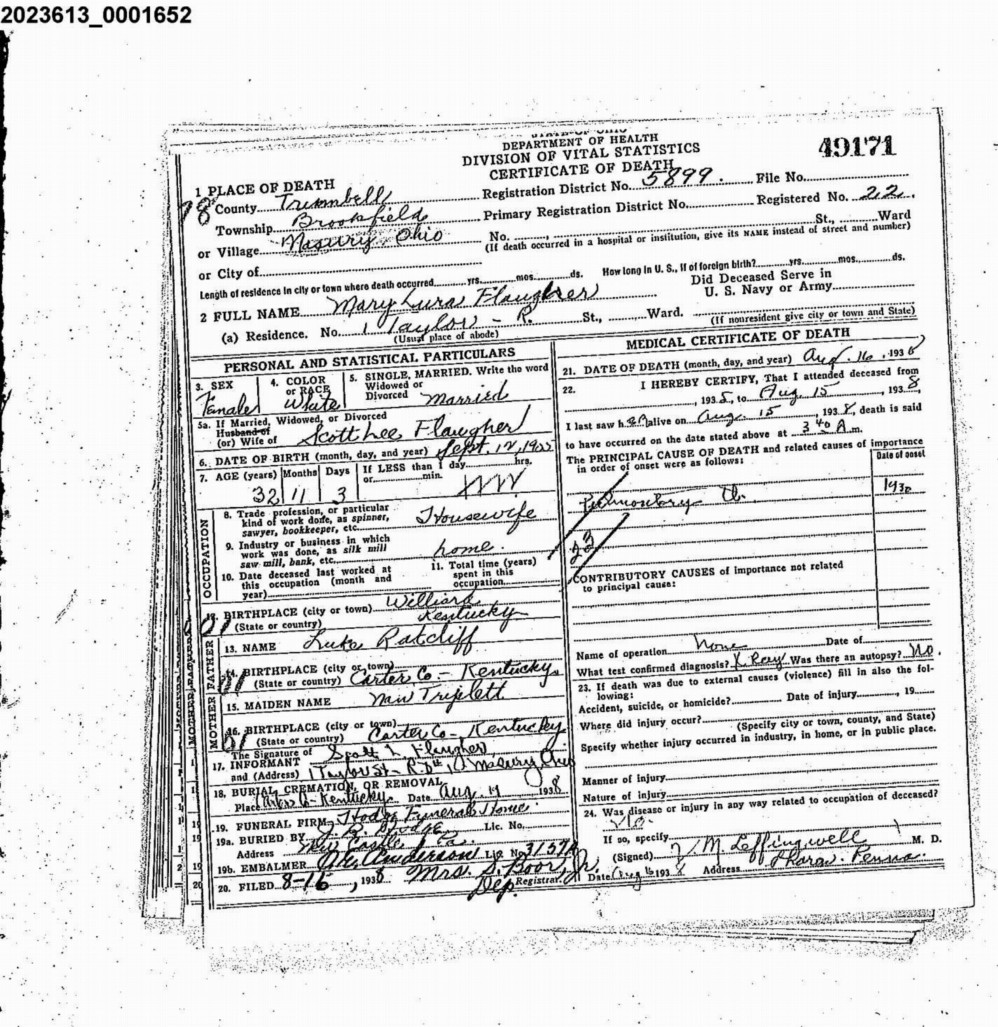 2023613_0001652
STATE OF OHIO
DEPARTMENT OF HEALTH
DIVISION OF VITAL STATISTICS
CERTIFICATE OF DEATH
49171
1 PLACE OF DEATH
County Trumbell Registration District No. 5899. File No.
Township Brookfield Primary Registration District No. Registered No. 22.
or Village Masury, Ohio No. St., Ward
(If death occurred in a hospital or institution, give its NAME instead of street and number)
or City of
Length of residence in city or town where death occurred yrs. mos. ds. How long in U. S., if of foreign birth? yrs. mos. ds.
2 FULL NAME Mary Lura Flaugher Did Deceased Serve in U. S. Navy or Army
(a) Residence. No. 1 Taylor - R. St., Ward.
(Usual place of abode) (If nonresident give city or town and State)
PERSONAL AND STATISTICAL PARTICULARS
3. SEX Female 4. COLOR or RACE White 5. SINGLE, MARRIED, Write the word Widowed or Divorced Married
5a. If Married, Widowed, or Divorced
Husband of
(or) Wife of Scott Lee Flaugher
6. DATE OF BIRTH (month, day, and year) Sept. 12, 19
7. AGE (years) 32 Months 11 Days 3 If LESS than 1 day hrs. or min.
OCCUPATION
8. Trade profession, or particular kind of work done, as spinner, sawyer, bookkeeper, etc. Housewife
9. Industry or business in which work was done, as silk mill saw mill, bank, etc. home.
10. Date deceased last worked at this occupation (month and year)
11. Total time (years) spent in this occupation
12. BIRTHPLACE (city or town) Williard
(State or country) Kentucky
FATHER
13. NAME Luke Ratcliff
14. BIRTHPLACE (city or town)
(State or country) Carter Co - Kentucky
MOTHER
15. MAIDEN NAME Triplett
16. BIRTHPLACE (city or town)
(State or country) Carter Co - Kentucky
The Signature of
17. INFORMANT Scott L Flaugher
and (Address) 1 Taylor St - R. D. Masury Ohio
18. BURIAL, CREMATION, OR REMOVAL
Place Carter Co - Kentucky Date Aug 17 1938
19. FUNERAL FIRM Hodge Funeral Home
19a. BURIED BY Lic. No.
Address New Castle, Pa.
19b. EMBALMER Anderson Lic. No.
20. FILED 8-16, 1938 Mrs. S. Boor, Jr.
Dep. Registrar.
MEDICAL CERTIFICATE OF DEATH
21. DATE OF DEATH (month, day, and year) Aug. 16, 1938
22. I HEREBY CERTIFY, That I attended deceased from
, 1935, to Aug. 15, 1938
I last saw her alive on Aug. 15, 1938, death is said
to have occurred on the date stated above at 3 40 A m.
The PRINCIPAL CAUSE OF DEATH and related causes of importance in order of onset were as follows: Date of onset
Pulmonary Tb. 1930
23
CONTRIBUTORY CAUSES of importance not related to principal cause:
Name of operation None Date of
What test confirmed diagnosis? X Ray Was there an autopsy? No.
23. If death was due to external causes (violence) fill in also the following:
Accident, suicide, or homicide? Date of injury , 19
Where did injury occur? (Specify city or town, county, and State)
Specify whether injury occurred in industry, in home, or in public place.
Manner of injury
Nature of injury
24. Was disease or injury in any way related to occupation of deceased?
No.
If so, specify
(Signed) M Leffingwell M. D.
Date Aug 16 1938 Address Sharon Penna